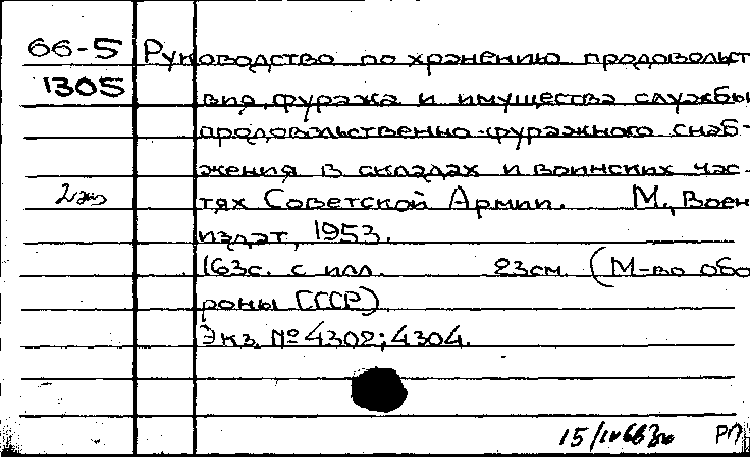 66-5 Руководство по хранению продовольст
1305 вия, фуража и имущества службы
продовольственно-фуражного снаб-
жения в складах и воинских час-
2 экз тях Советской Армии. М., Воен
издат, 1953.
163с. с илл. 23см. (М-во обо
роны СССР)
Экз. № 4302; 4304.
15/IV663г РП